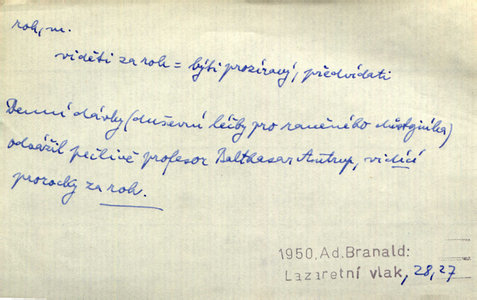 roh, m.
viděti za roh = býti prozíravý, předvídati
Denní dávky (duševní léčby pro raněného důstojníka)
odvážil pečlivě profesor Balthasar Antrup, vidící
prorocky za roh.
1950, Ad. Branald:
Lazaretní vlak, 28,27